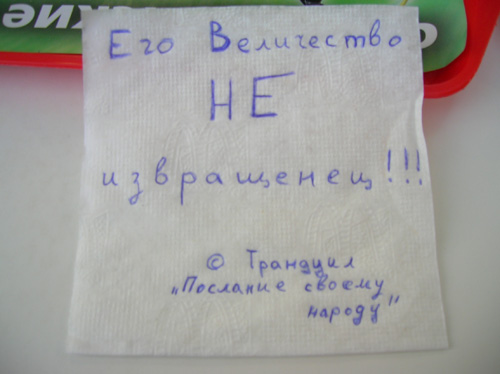 Его Величество
НЕ
извращенец!!!
© Трандуил
„Послание своему
народу"